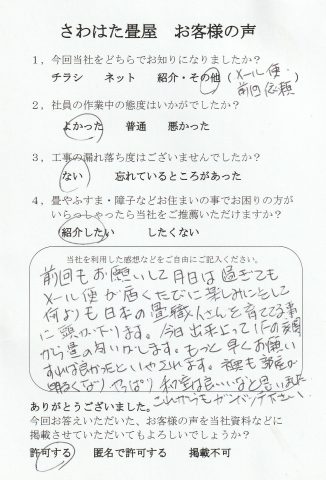 さわはた畳屋　お客様の声
1，今回当社をどちらでお知りになりましたか？
チラシ　ネット　紹介・その他（メール便・前回依頼）
2，社員の作業中の態度はいかがでしたか？
よかった　普通　悪かった
3，工事の漏れ落ち度はございませんでしたか？
ない　忘れているところがあった
4，畳やふすま・障子などお住まいの事でお困りの方が
いらっしゃったら当社をご推薦いただけますか？
紹介したい　したくない
当社を利用した感想などをご自由にご記入ください。
前回もお願いして月日は過ぎても
メール便が届くたびに楽しみにとして
何よりも日本の畳職人さんを育ててる事
に頭が下ります。今日出来上って1Fの玄関
から畳の匂いがします。もっと早くお願い
すれば良かったと
明るくなりやっぱり和室は良いなと思いました
これからもガンバッテ下さい。
ありがとうございました。
今回お答えいただいた、お客様の声を当社資料などに
掲載させていただいてもよろしいでしょうか？
許可する　匿名で許可する　掲載不可